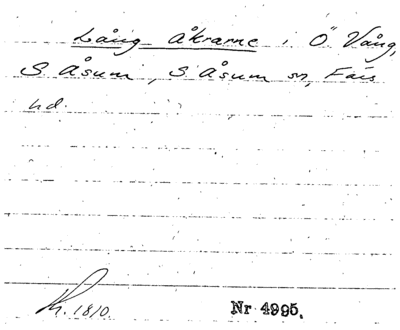 Lång åkrarne i Ö Vång,
S Åsum, S Åsum sn, Färs
hd.
Kh. 1810. Nr 4995.